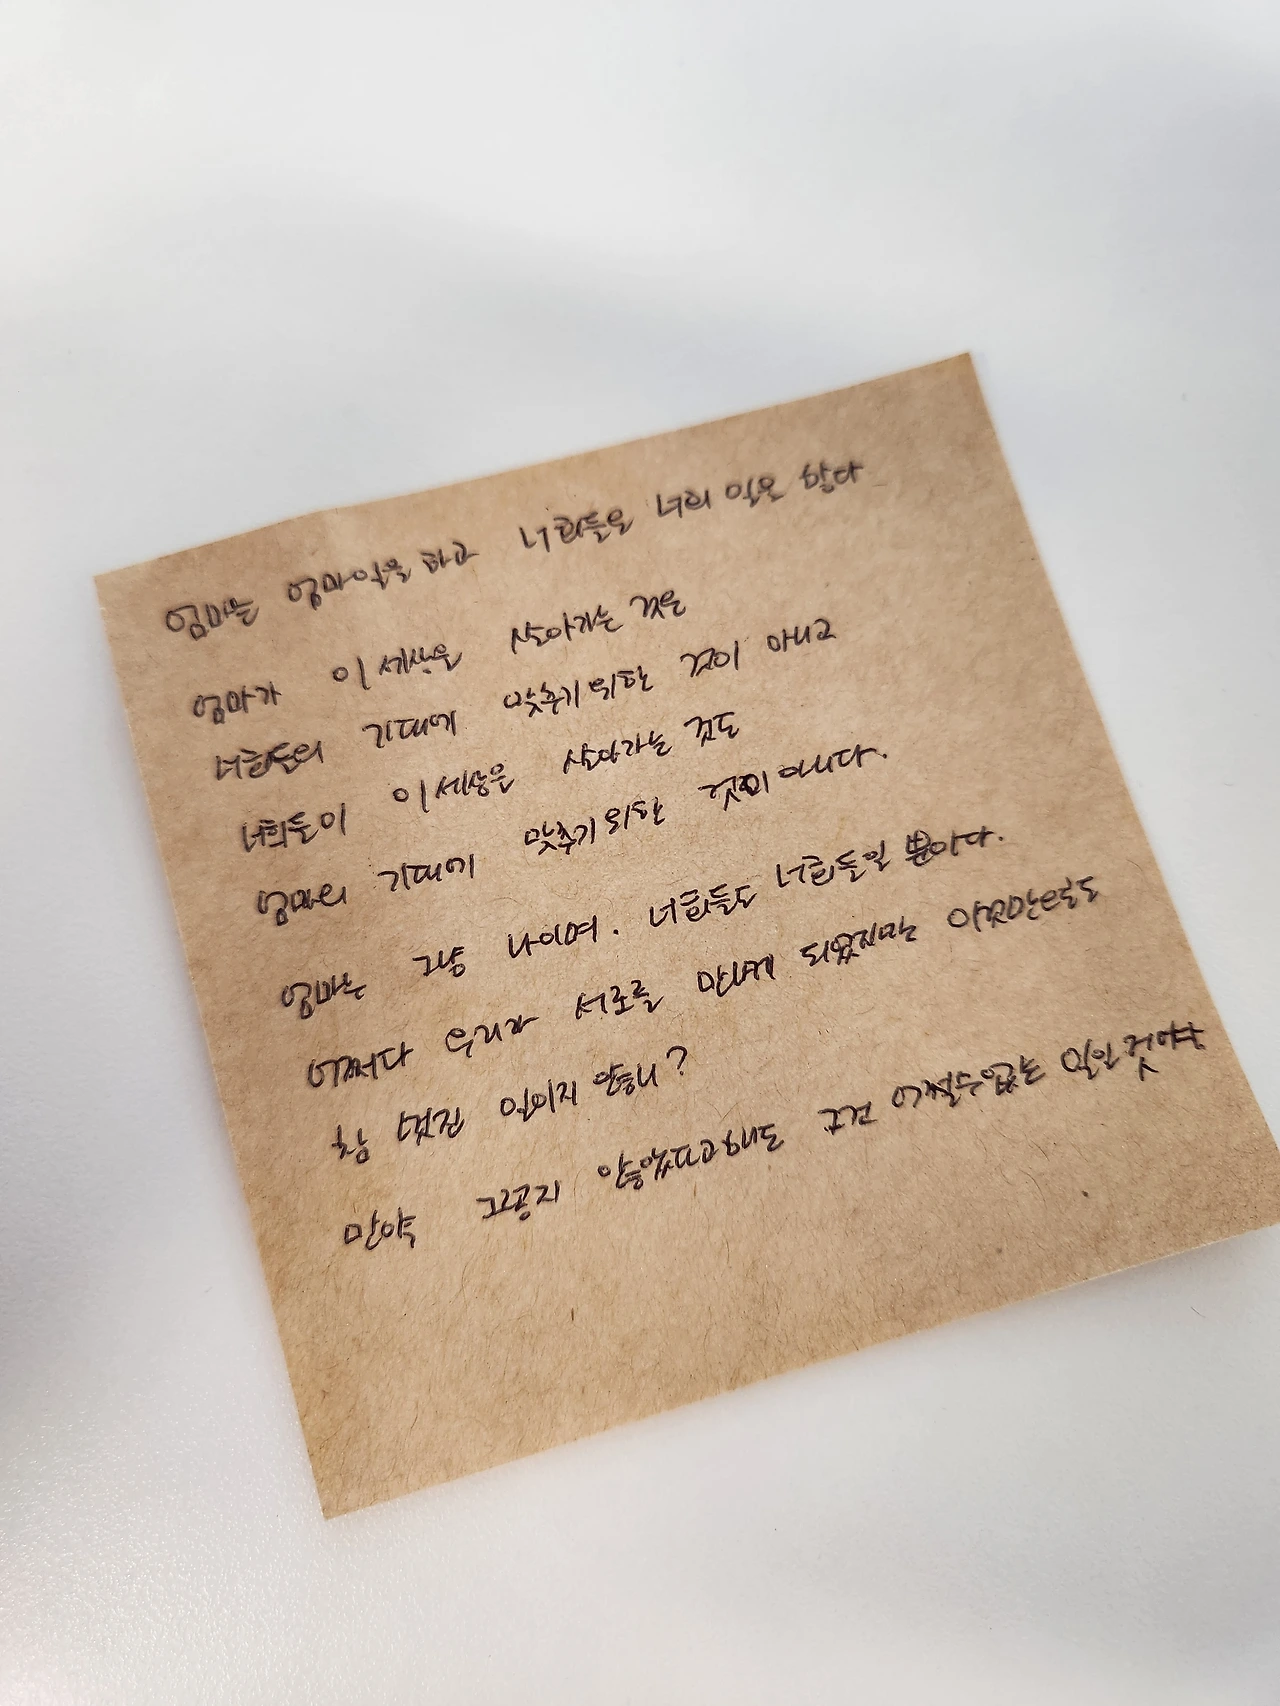 엄마는 엄마일을 하고 너희들은 너희 일을 한다
엄마가 이 세상을 살아가는 것은
너희들의 기대에 맞추기 위한 것이 아니고
너희들이 이 세상을 살아가는 것도
엄마의 기대에 맞추기 위한 것이 아니다.
엄마는 그냥 나이며. 너희들도 너희들일 뿐이다.
어쩌다 우리가 서로를 만나게 되었지만 이것만으로도
참 멋진 일이지 않니?
만약 그렇지 않았다고해도 그건 어쩔수없는 일인 것이야.